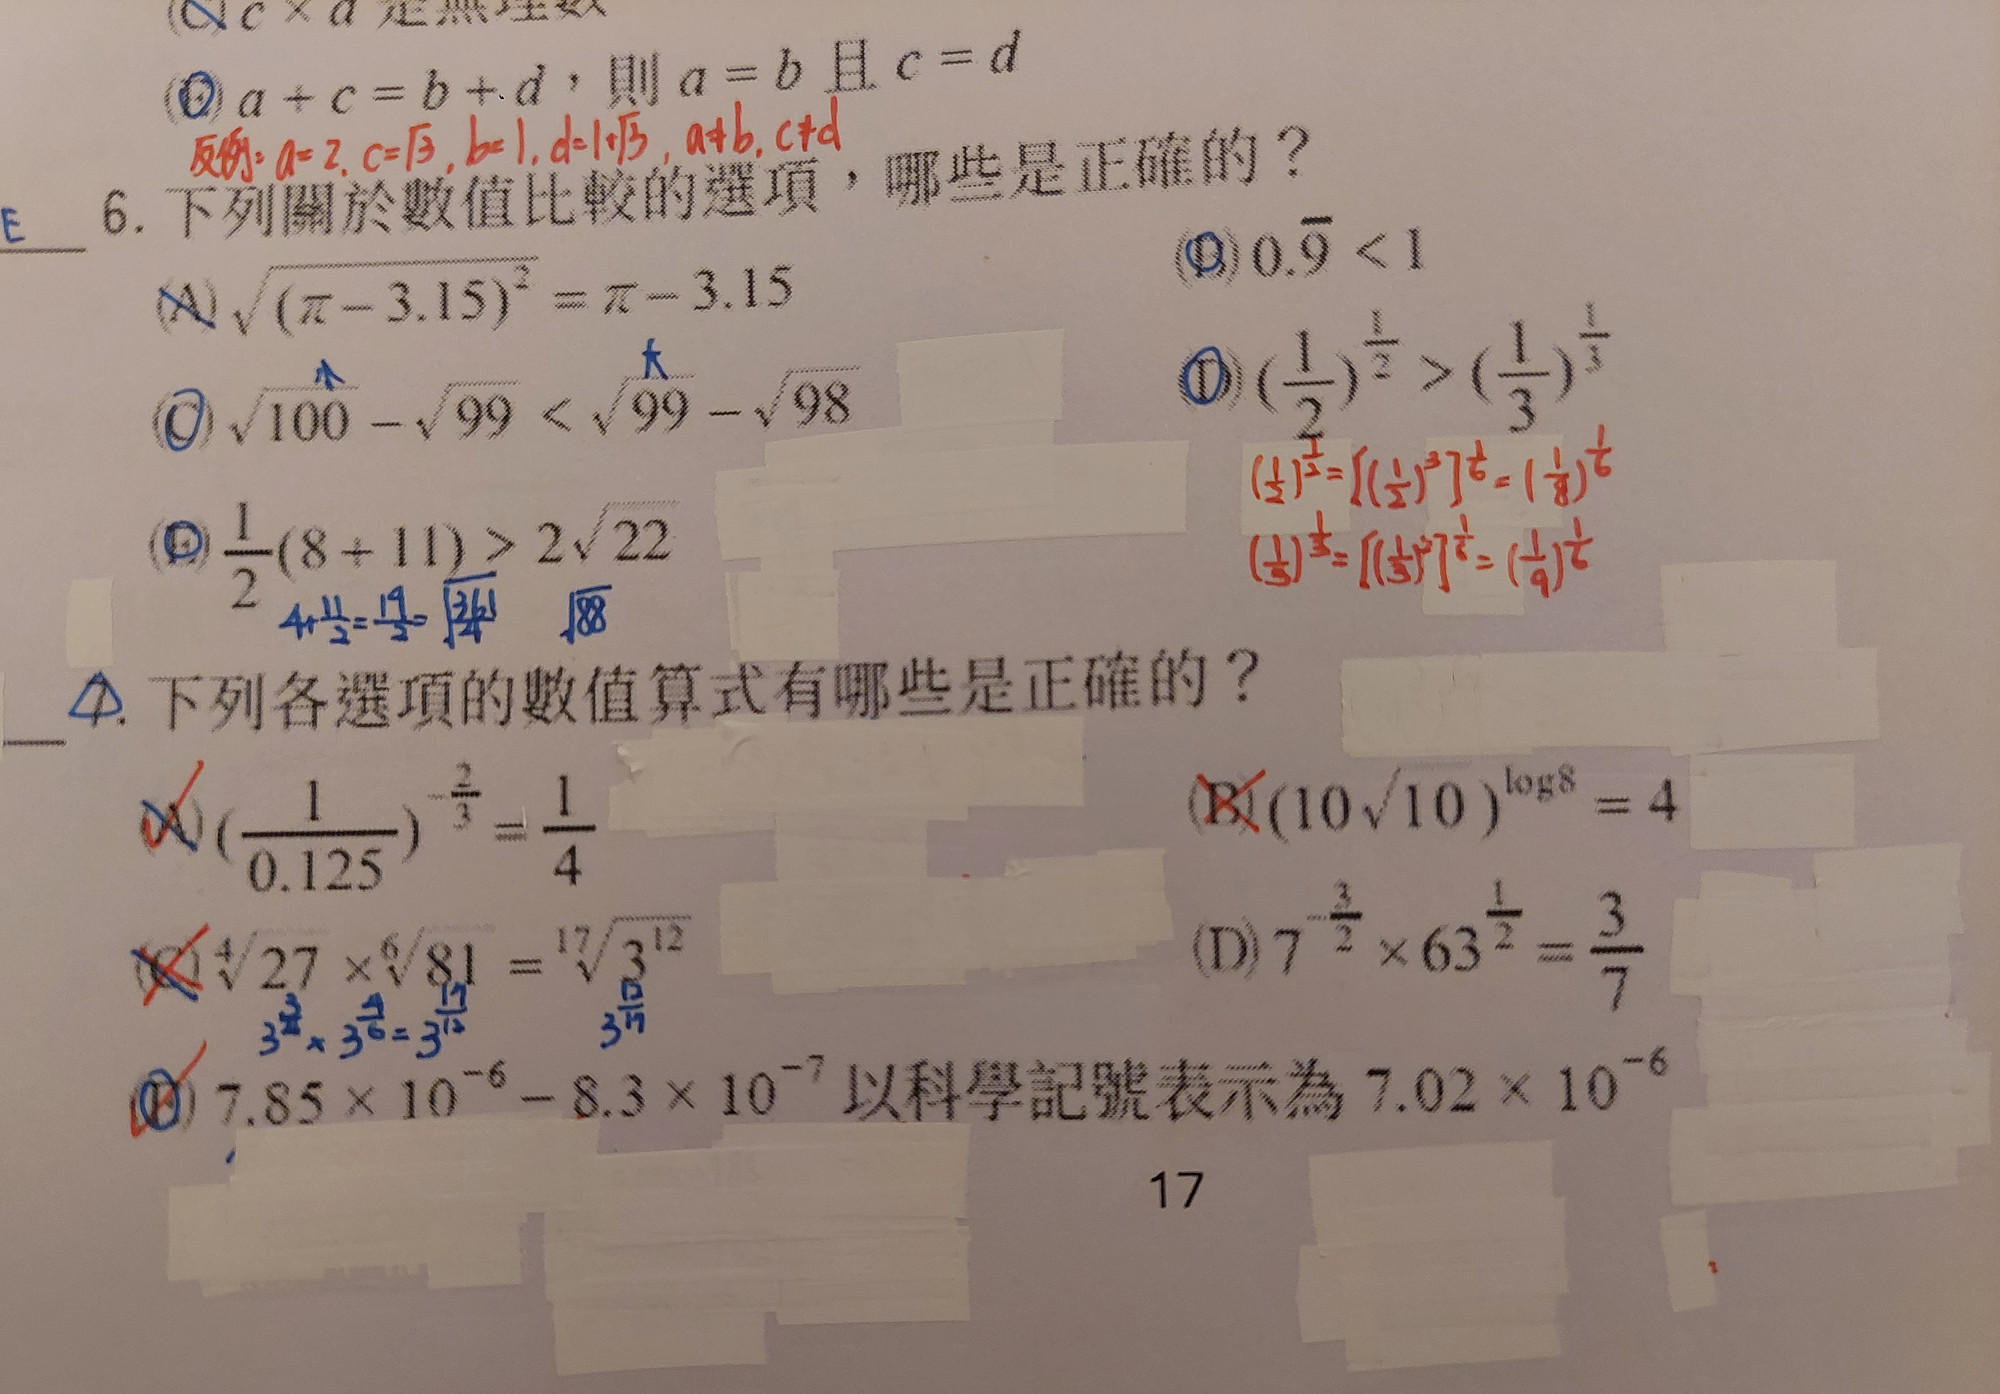 (C) c × d 是無理數
(E) a + c = b + d，則 a = b 且 c = d
反例: a=2, c=√3, b=1, d=1+√3, a≠b, c≠d
E 6. 下列關於數值比較的選項，哪些是正確的？
(A) √((π − 3.15)²) = π − 3.15 (B) 0.9̅ < 1
(C) √100 − √99 < √99 − √98 (D) (1/2)^(1/2) > (1/3)^(1/3)
(1/2)^(1/2) = [(1/2)³]^(1/6) = (1/8)^(1/6)
(1/3)^(1/3) = [(1/3)²]^(1/6) = (1/9)^(1/6)
(E) 1/2(8 + 11) > 2√22
4+11/2 = 19/2 = √(361/4) √88
7. 下列各選項的數值算式有哪些是正確的？
(A) (1/0.125)^(−2/3) = 1/4 (B) (10√10)^(log8) = 4
(C) ⁴√27 × ⁶√81 = ¹⁷√(3¹²) (D) 7^(−3/2) × 63^(1/2) = 3/7
3^(3/4) × 3^(4/6) = 3^(17/12) 3^(12/17)
(E) 7.85 × 10⁻⁶ − 8.3 × 10⁻⁷ 以科學記號表示為 7.02 × 10⁻⁶
17